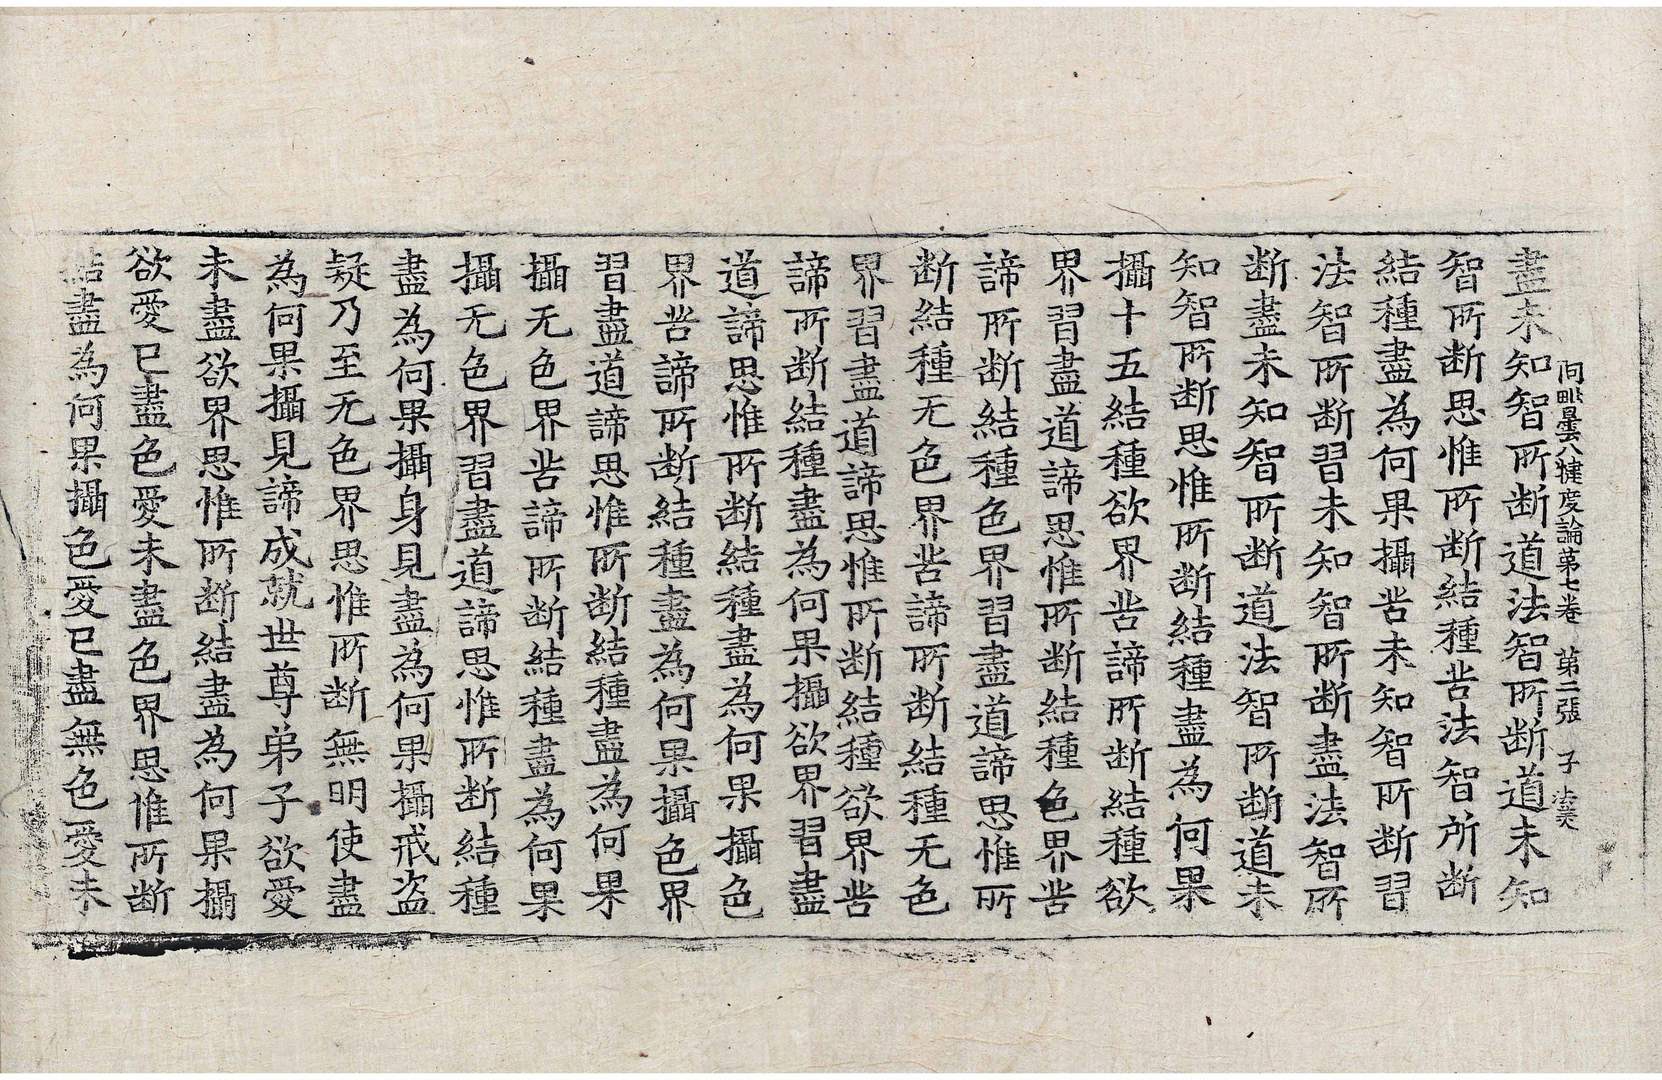 阿毗曇八犍度論苐七卷 苐二張 子
盡未知智所断道法智所断道未知
智所断思惟所断結種苦法智所断
結種盡為何果攝苦未知智所断習
法智所断習未知智所断盡法智所
断盡未知智所断道法智所断道未
知智所断思惟所断結種盡為何果
攝十五結種欲界苦諦所断結種欲
界習盡道諦思惟所断結種色界苦
諦所断結種色界習盡道諦思惟所
断結種无色界苦諦所断結種无色
界習盡道諦思惟所断結種欲界苦
諦所断結種盡為何果攝欲界習盡
道諦思惟所断結種盡為何果攝色
界苦諦所断結種盡為何果攝色界
習盡道諦思惟所断結種盡為何果
攝无色界苦諦所断結種盡為何果
攝无色界習盡道諦思惟所断結種
盡為何果攝身見盡為何果攝戒盗
疑乃至无色界思惟所断無明使盡
為何果攝見諦成就世尊弟子欲愛
未盡欲界思惟所断結盡為何果攝
欲愛已盡色愛未盡色界思惟所断
結盡為何果攝色愛已盡無色愛未